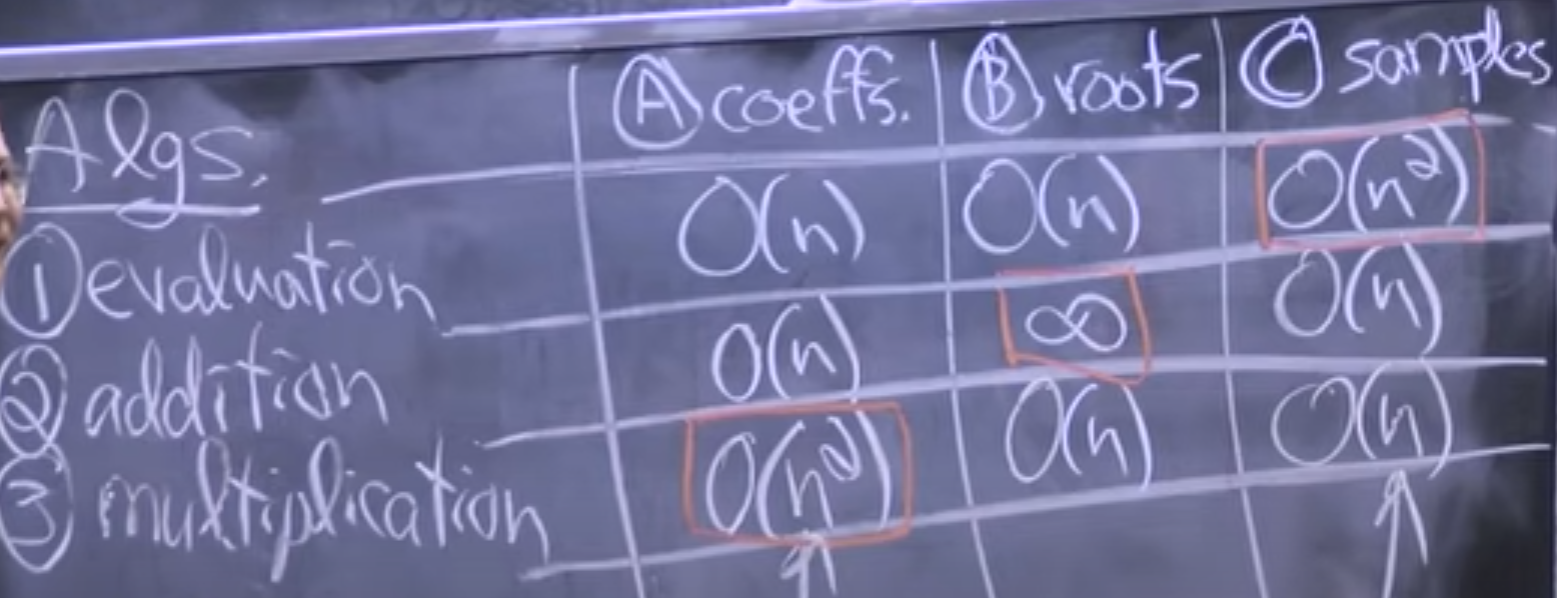 Algs. Ⓐ coeffs. Ⓑ roots Ⓒ samples
① evaluation O(n) O(n) O(n²)
② addition O(n) ∞ O(n)
③ multiplication O(n²) O(n) O(n)